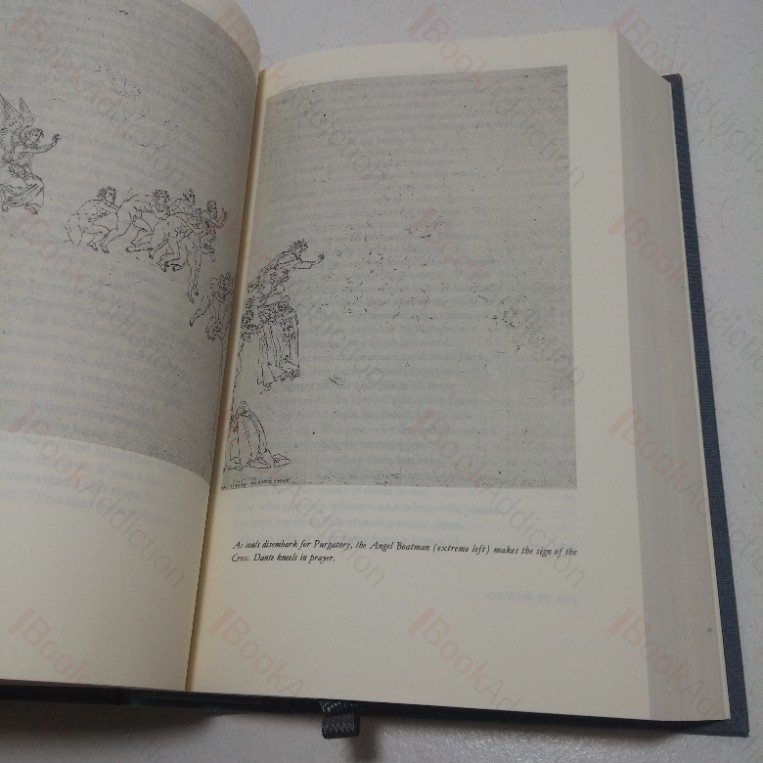 As souls disembark for Purgatory, the Angel Boatman (extreme left) makes the sign of the
Cross. Dante kneels in prayer.
BookAddiction